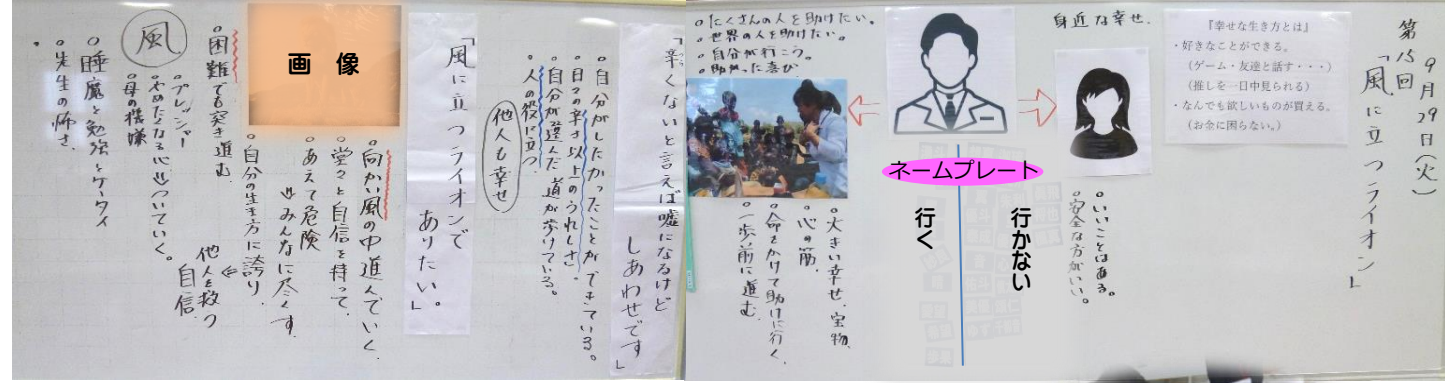 9月29日(火)
第15回
「風に立つライオン」
『幸せな生き方とは』
・好きなことができる。
（ゲーム・友達と話す・・・）
（推しを一日中見られる）
・なんでも欲しいものが買える。
（お金に困らない。）
身近な幸せ.
。いいことはある。
。安全な方がいい。
ネームプレート
行かない
行く
。たくさんの人を助けたい。
。世界の人を助けたい。
。自分が行こう。
。助かった喜び
。大きい幸せ、宝物.
。心の筋.
。命をかけて助けに行く
。一歩前に進む.
「辛くないと言えば嘘になるけど
しあわせです」
。自分がしたかったことができている。
。日々の辛さ以上のうれしさ.
。自分が選んだ道が歩けている。
。人の役に立つ.
他人も幸せ
「風に立つライオンで
ありたい。」
画像
。向かい風の中進んでいく.
。堂々と自信を持って.
。あえて危険
⇓みんなに尽くす.
。自分の生き方に誇り
⇐自信.
他人を救う
。困難でも突き進む.
風
。プレッシャー
。やめたくなる心⇓ついていく。
。母の機嫌
。睡魔と勉強とケータイ
。先生の怖さ.